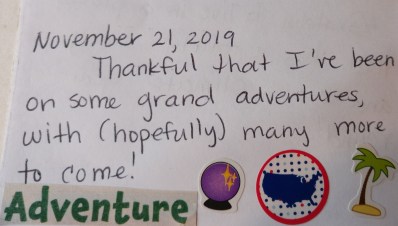 November 21, 2019
Thankful that I've been
on some grand adventures,
with (hopefully) many more
to come!
Adventure